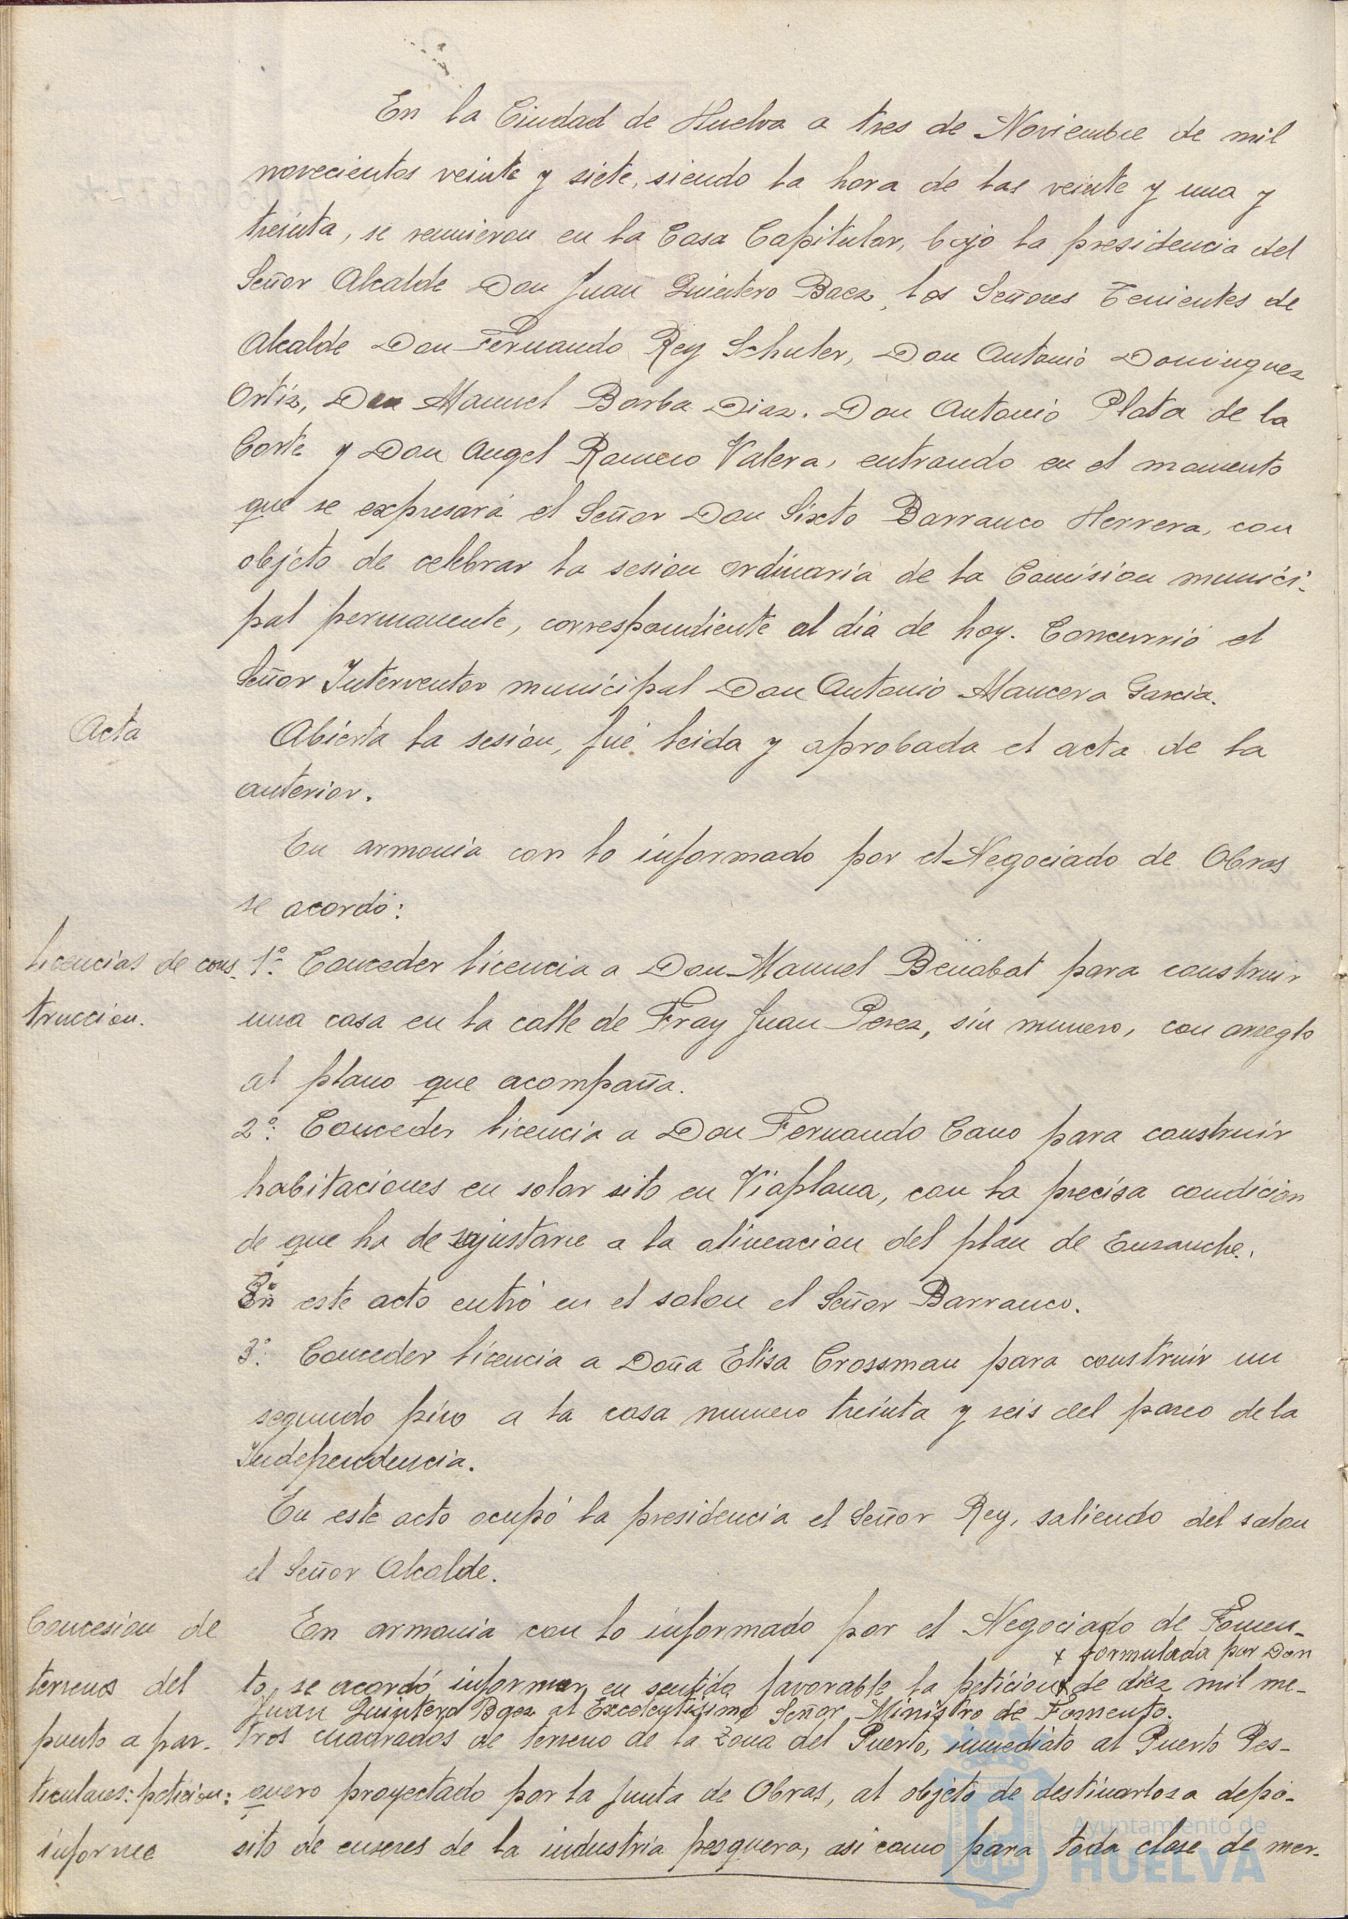 En la Ciudad de Huelva a tres de Noviembre de mil
novecientos veinte y siete, siendo la hora de las veinte y una y
treinta, se reunieron en la Casa Capitular, bajo la presidencia del
Señor Alcalde Don Juan Quintero Baez, los Señores Tenientes de
Alcalde Don Fernando Rey Schuler, Don Antonio Dominguez
Ortiz, Don Manuel Borba Diaz. Don Antonio Plata de la
Corte y Don Angel Romero Valera, entrando en el momento
que se expresará el Señor Don Sixto Barranco Herrera, con
objeto de celebrar la sesion ordinaria de la Comision munici-
pal permanente, correspondiente al dia de hoy. Concurrió el
Señor Interventor municipal Don Antonio Mancera Garcia.
Acta
Abierta la sesión, fué leida y aprobada el acta de la
anterior.
En armonia con lo informado por el Negociado de Obras
se acordó:
Licencias de cons-
truccion.
1º. Conceder licencia a Don Manuel Benabat para construir
una casa en la calle de Fray Juan Perez, sin numero, con arreglo
al plano que acompaña.
2º. Conceder licencia a Don Fernando Cano para construir
habitaciones en solar sito en Viaplana, con la precisa condicion
de que ha de ajustarse a la alineacion del plan de Ensanche.
En este acto entró en el salon el Señor Barranco.
3º. Conceder licencia a Doña Elisa Crossman para construir un
segundo piso a la casa numero treinta y seis del paseo de la
Independencia.
En este acto ocupó la presidencia el Señor Rey, saliendo del salon
el Señor Alcalde.
Concesion de
terrenos del
puerto a par-
ticulares: peticion:
informe
En armonia con lo informado por el Negociado de Fomen-
x formulada por Don
to, se acordó informar en sentido favorable la peticion x de diez mil me-
Juan Quintero Baez al Excelentisimo Señor Ministro de Fomento.
tros cuadrados de terreno de la Zona del Puerto, inmediato al Puerto Pes-
quero proyectado por la Junta de Obras, al objeto de destinarlos a depo-
sito de enseres de la industria pesquera, asi como para toda clase de mer-
Ayuntamiento de
HUELVA